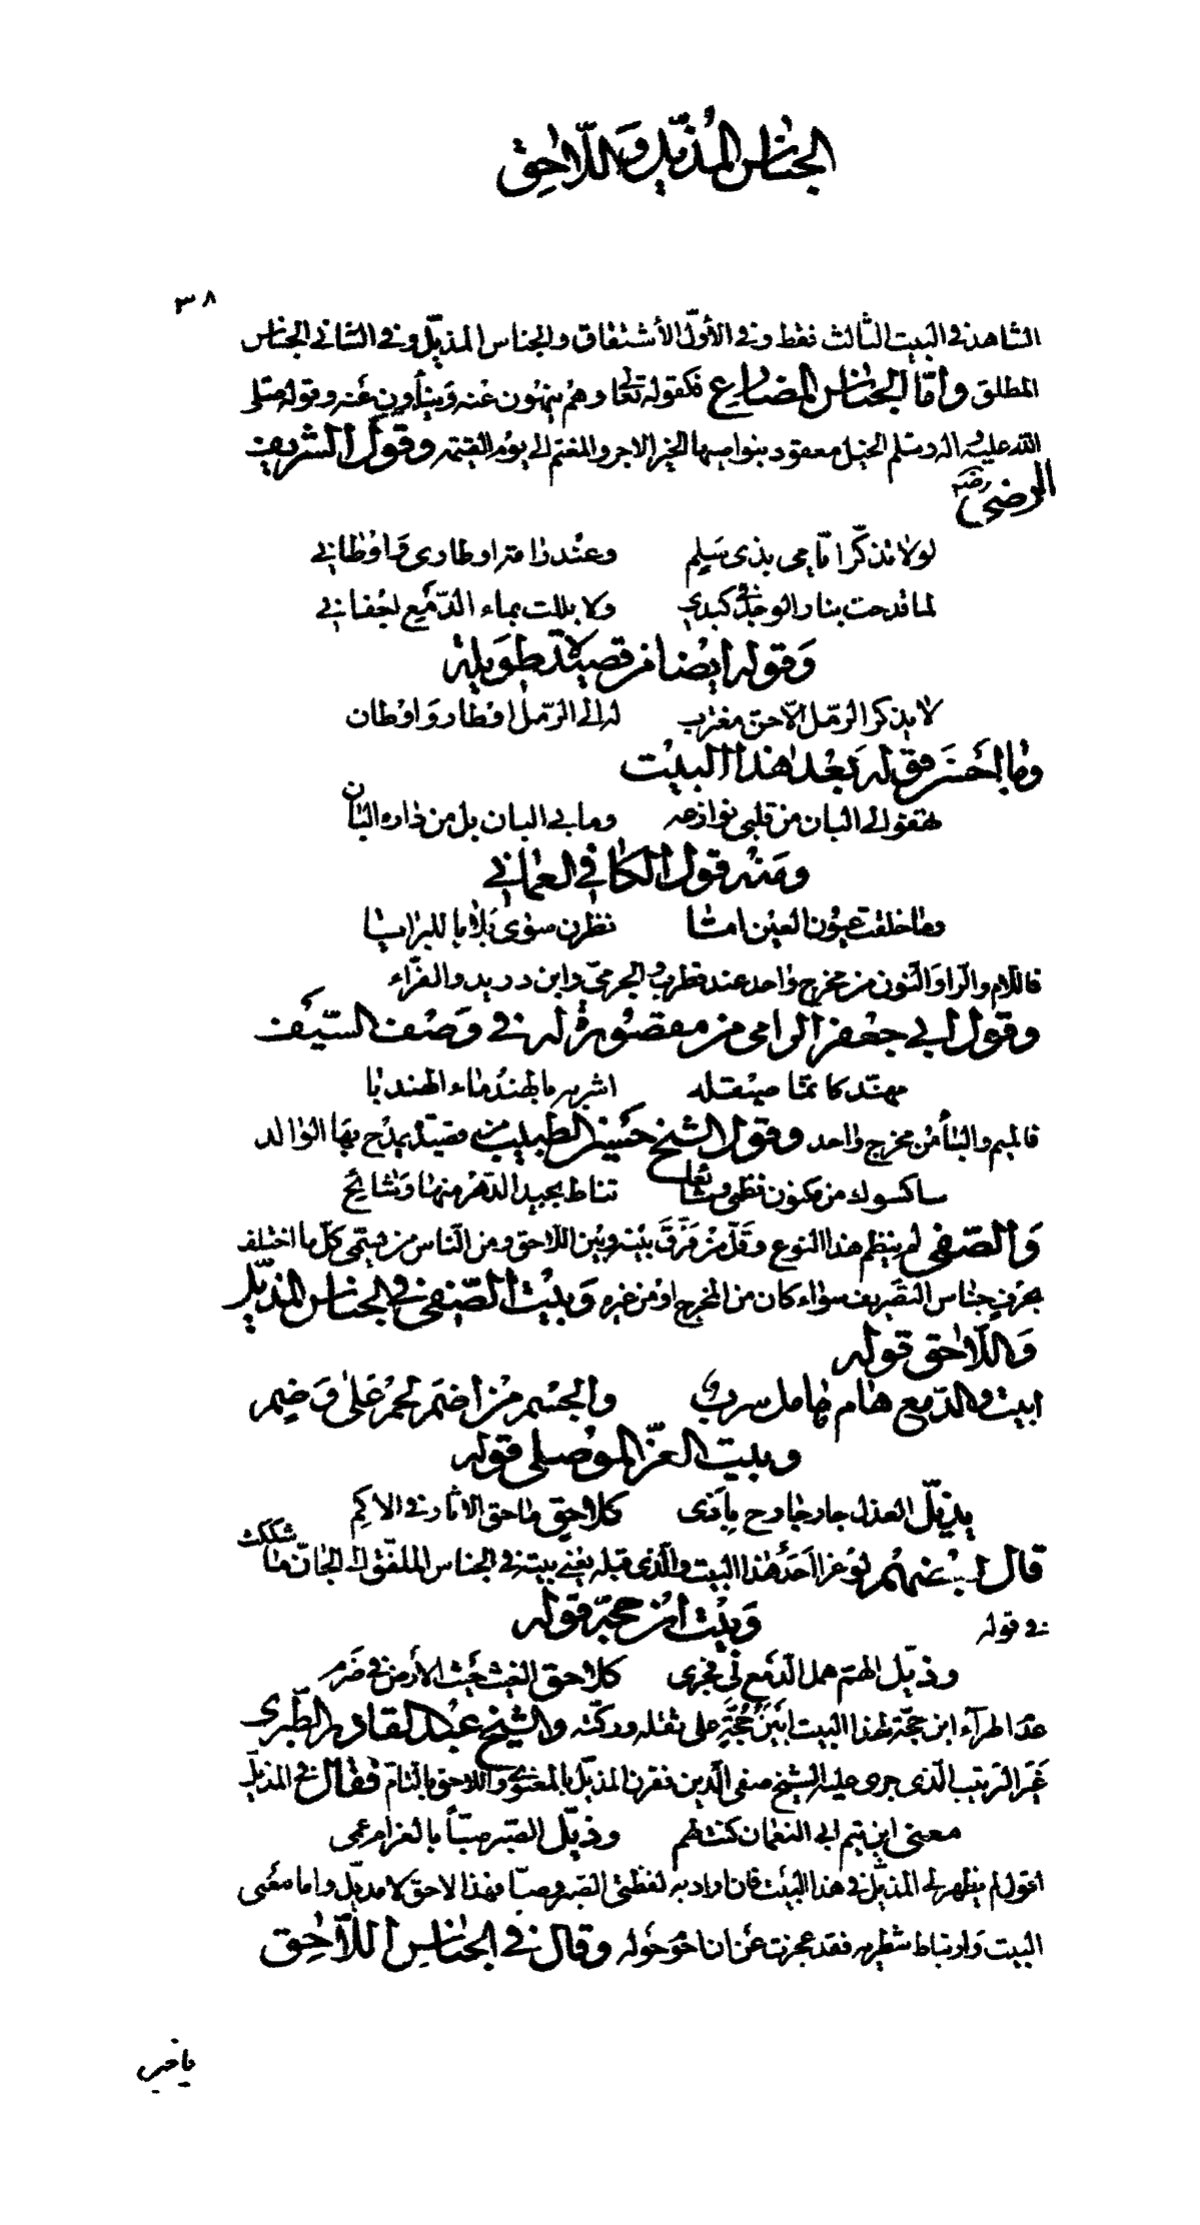 الجناس المُذيّل واللّاحِق
٣٨
الشاهد في البيت الثالث فقط وفي الأوّل الأشتقاق والجناس المذيّل وفي الثاني الجناس
المطلق وأمّا الجناس المضارع فكقوله تعالى وهُم ينهون عنه وينأون عنه وقوله صلى
الله عليه واله وسلم الخيل معقود بنواصيها الخير الاجر والمغنم الى يوم القيمة وقول الشريف
الرضيّ رضه
لولا تذكّر ايّامي بذي سَلِم وعند رامة اوطاري وَاوْطاني
لما قدحت بنار الوجد في كبدي ولا بللت بماء الدّمع اجفاني
وَقوله ايضا من قصيدة طَويلة
لا يذكر الرّمل الّا حنّ مغترب له الى الرّمل اوْطار وَاوْطان
وما احسَن قوله بَعْد هٰذا البيْت
تهفو الى البان من قلبي نوازعه وما بي البان بل من داره البان
ومَنه قول الكافي العماني
وما خلقت عيون العين امّا نظرن سوى بَلايا للبرايا
فاللام والرّا والنون من مخرج واحد عند قطرب والجرميّ وابن دريد والفرّاء
وقول ابي جعفر الرامي من مقصُورة له في وَصْف السّيْف
مهنّد كانّما صيْقله اشربه بالهند ماء الهندبا
فالميم والبأ من مخرج واحد وقول الشيخ حسَين الطبيب من قصيدة يمدح بها الوالد
ساكسوك من مكنون نظمي تناط بجيد الدّهر منها وشائح
وَالصّفي لم ينظم هذا النوع وقلّ من فرّق بينه وبين اللاحق ومن الناس من يسمّي كلّ ما اختلف
بحرفٍ جناس التصريف سواء كان من المخرج او من غيره وَبيْت الصّفي في الجناس المذيّل
وَاللّاحق قوله
ابيت والدّمع هام هامل سرب والجسْم من اضم لحم على وَضم
وبيت العزّ المَوْصلي قوله
يذيّل العذل جار جارح باَذى كلاحِق ماحق الاثار في الاكم
قال بعضهم لوْ عزا اَحَد هٰذا البيت والّذي قبله يعْني بيته في الجناس الملفّق الى الجانّ ما شككت
في قوله
وَبيْت ابن حجّة قوله
وذيّل الهمّ همل الدّمع لي فجرى كلاحق الغيث حيْث الأرض في ضرم
عندَ اطراء ابن حجّة لهذا البيت ابيَن حُجَّةٍ على ثقله وركّته والشيخ عبْد القادر الطّبري
غيّر الترتيب الّذي جرى عليه الشيخ صفي الدّين فقرن المذيّل بالمعنوي واللاحق بالتامّ فقال في المذيّل
معنى ابن تيم ابي النعمان كنت لهم وذيّل الصّبر صبّاً بالغرام عمي
اقول لم يظهر لي المذيّل في هذا البيْت فان اراد به لفظتي الصّبر وصبّا فهذا لاحق لا مذيّل واما معْنى
البيت وَارتباط شطريه فقد عجزت عَن ان احوْم حَوله وقال في الجناسِ اللّاحِق